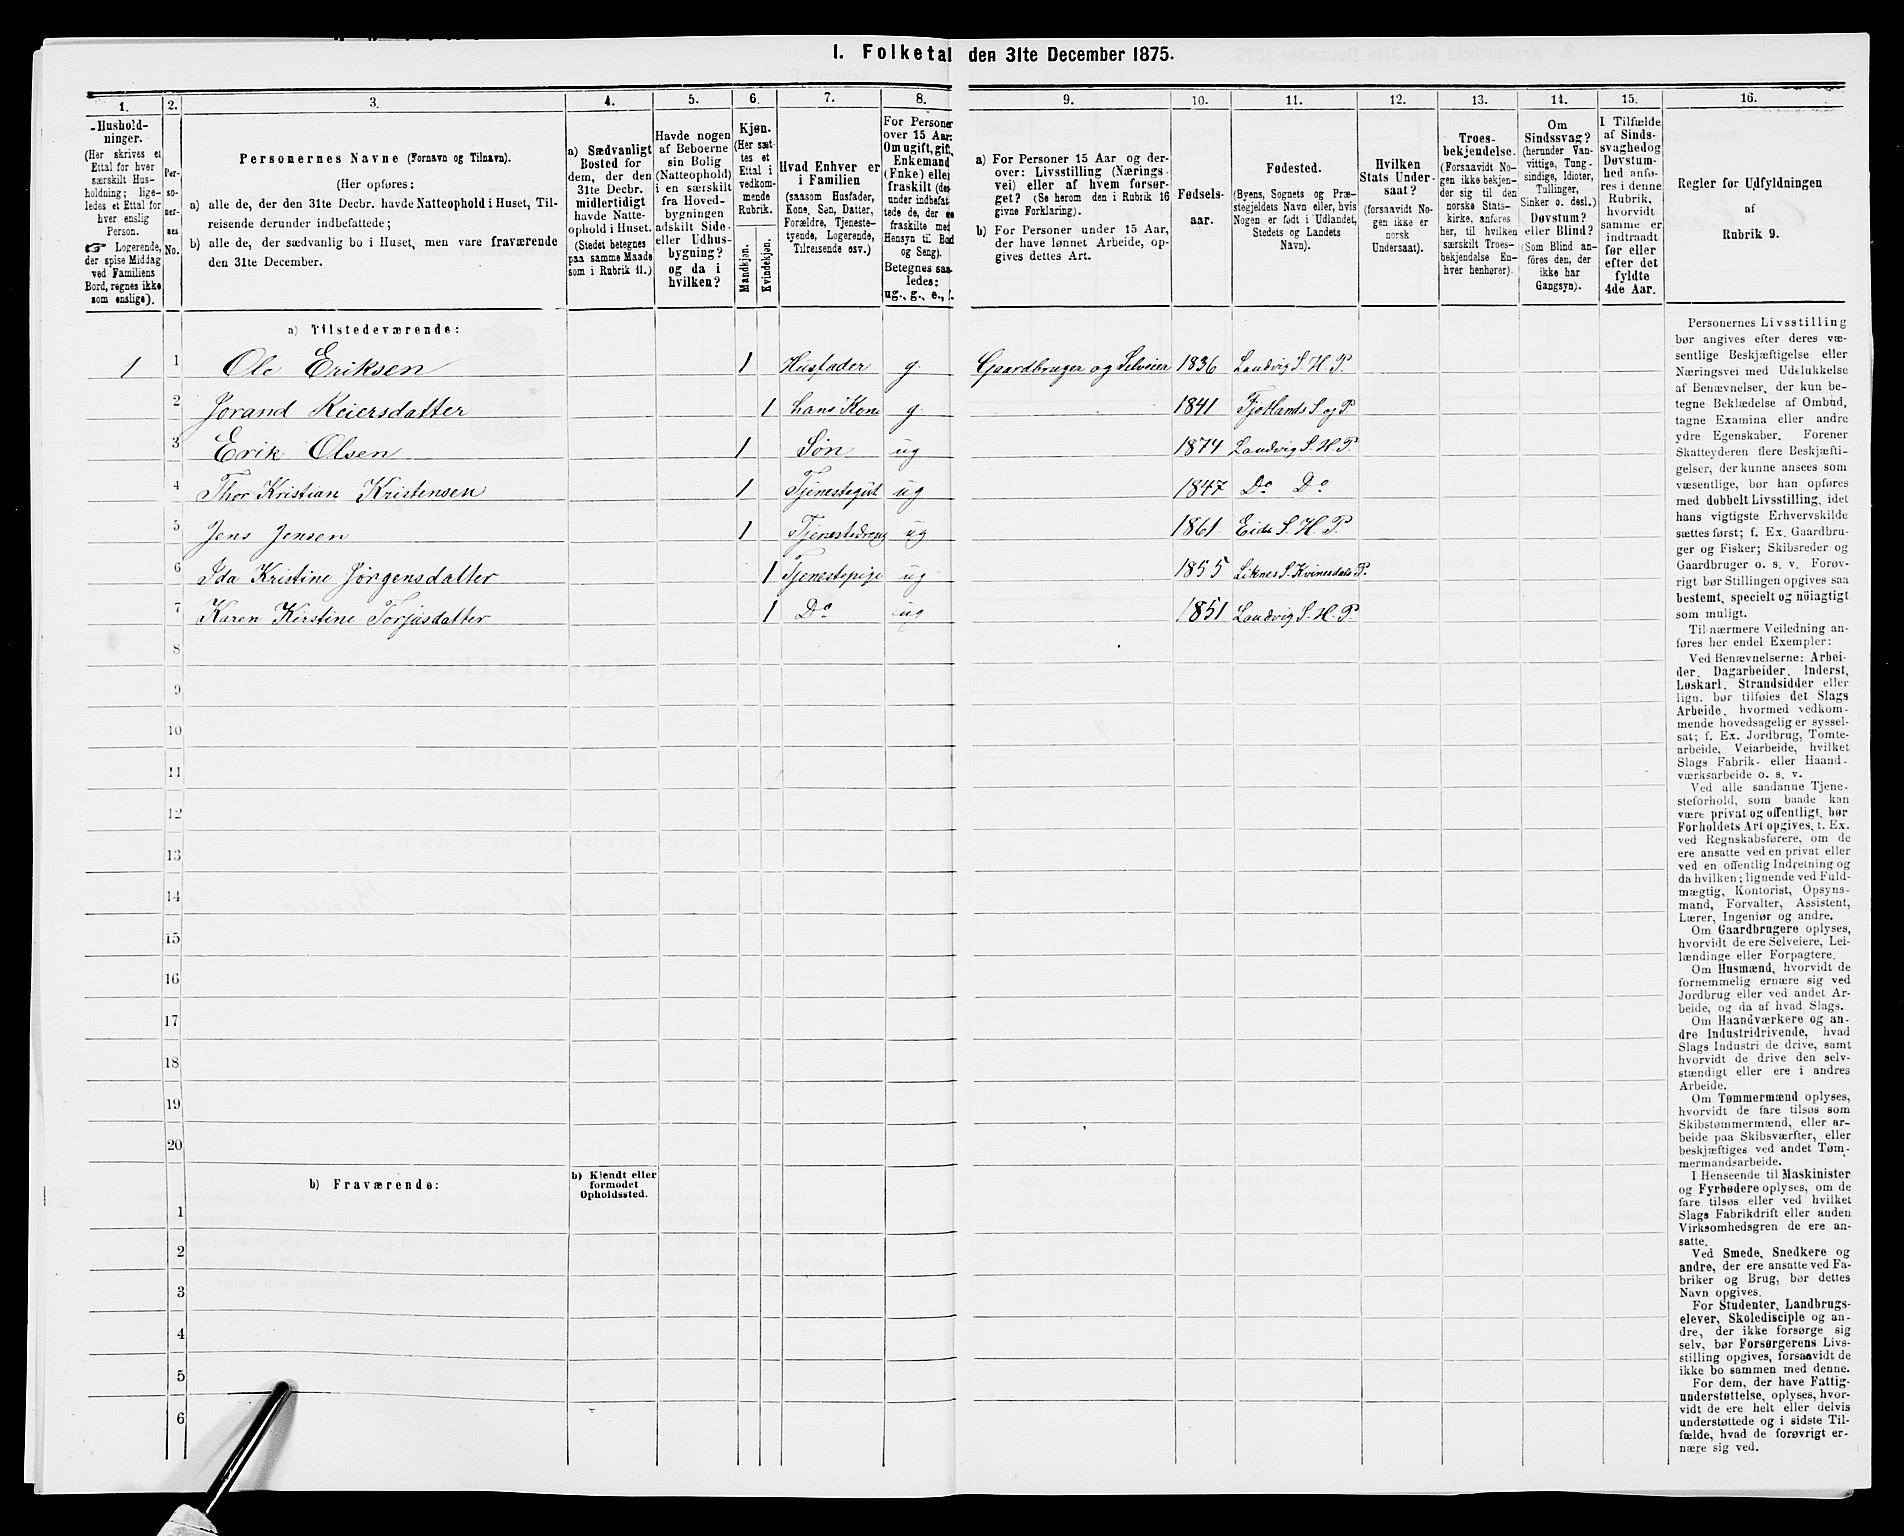 1. Folketal den 31te December 1875.
1. 2. 3. 4. 5. 6. 7. 8. 9. 10. 11. 12. 13. 14. 15. 16.
Husholdninger.
(Her skrives et
Ettal for hver
særskilt Hus-
holdning; lige-
ledes et Ettal for
hver enslig
Person.
☞ Logerende,
der spise Middag
ved Familiens
Bord, regnes ikke
som enslige).
Per-
so-
ner-
nes
No.
Personernes Navne (Fornavn og Tilnavn).
(Her opføres:
a) alle de, der den 31te Decbr. havde Natteophold i Huset, Til-
reisende derunder indbefattede;
b) alle de, der sædvanlig bo i Huset, men vare fraværende
den 31te December.
a) Sædvanligt
Bosted for
dem, der den
31te Decbr.
midlertidigt
havde Natte-
ophold i Huset.
(Stedet betegnes
paa samme Maade
som i Rubrik 11.)
Havde nogen
af Beboerne
sin Bolig
(Natteophold)
i en særskilt
fra Hoved-
bygningen
adskilt Side-
eller Udhus-
bygning?
og da i
hvilken?
Kjøn.
(Her sæt-
tes et
Ettal i
vedkom-
mende
Rubrik.
Mandkjøn.
Kvindekjøn.
Hvad Enhver er
i Familien
(saasom Husfader,
Kone, Søn, Datter,
Forældre, Tjeneste-
tyende, Logerende,
Tilreisende osv.)
For Personer
over 15 Aar:
Om ugift, gift,
Enkemand
(Enke) eller
fraskilt (der-
under indbefat-
tede de, der ere
fraskilte med
Hensyn til Bord
og Seng).
Betegnes saa-
ledes:
ug., g., e., f.
a) For Personer 15 Aar og der-
over: Livsstilling (Nærings-
vei) eller af hvem forsør-
get? (Se herom den i Rubrik 16
givne Forklaring).
b) For Personer under 15 Aar,
der have lønnet Arbeide, op-
gives dettes Art.
Fødsels-
aar.
Fødested.
(Byens, Sognets og Præ-
stegjeldets Navn eller, hvis
Nogen er født i Udlandet,
Stedets og Landets
Navn).
Hvilken
Stats Under-
saat?
(forsaavidt No-
gen ikke er
norsk
Undersaat).
Troes-
bekjendelse.
(Forsaavidt No-
gen ikke bekjen-
der sig til den
norske Stats-
kirke, anføres
her, til hvilken
særskilt Troes-
bekjendelse En-
hver henhører).
Om
Sindssvag?
(herunder Van-
vittige, Tung-
sindige, Idioter,
Tullinger,
Sinker o. desl.)
Døvstum?
eller Blind?
(Som Blind an-
føres den, der
ikke har
Gangsyn).
I Tilfælde
af Sinds-
svaghed og
Døvstum-
hed anfø-
res i denne
Rubrik,
hvorvidt
samme er
indtraadt
før eller
efter det
fyldte
4de Aar.
Regler for Udfyldningen
af
Rubrik 9.
a) Tilstedeværende:
1 1 Ole Eriksen 1 Husfader g. Gaardbruger og Selveier 1836 Landvig S. H. P.
2 Jorand Reiersdatter 1 hans Kone g 1841 Fjotlands S og P
3 Erik Olsen 1 Søn ug 1874 Landvig S. H. P.
4 Thor Kristian Kristensen 1 Tjenestegut ug 1847 Do Do
5 Jens Jensen 1 Tjenestedreng ug 1861 Eide S. H. P.
6 Ida Kristine Jørgensdatter 1 Tjenestepige ug 1855 Liknes S. Kvinesdals P.
7 Karen Kirstine Torjusdatter 1 Do ug 1851 Landvig S. H. P.
8
9
10
11
12
13
14
15
16
17
18
19
20
b) Fraværende:
b) Kjendt eller
formodet
Opholdssted.
1
2
3
4
5
6
Personernes Livsstilling
bør angives efter deres væ-
sentlige Beskjæftigelse eller
Næringsvei med Udelukkelse
af Benævnelser, der kun be-
tegne Beklædelse af Ombud,
tagne Examina eller andre
ydre Egenskaber. Forener
Skatteyderen flere Beskjæfti-
gelser, der kunne ansees som
væsentlige, bør han opføres
med dobbelt Livsstilling, idet
hans vigtigste Erhvervskilde
sættes først; f. Ex. Gaardbru-
ger og Fisker; Skibsreder og
Gaardbruger o. s. v. Forøv-
rigt bør Stillingen opgives saa
bestemt, specielt og nöiagtigt
som muligt.
Til nærmere Veiledning an-
føres her endel Exempler:
Ved Benævnelserne: Arbei-
der, Dagarbeider, Inderst,
Løskarl, Strandsidder eller
lign. bør tilføies det Slags
Arbeide, hvormed vedkom-
mende hovedsagelig er syssel-
sat; f. Ex. Jordbrug, Tomte-
arbeide, Veiarbeide, hvilket
Slags Fabrik- eller Haand-
værksarbeide o. s. v.
Ved alle saadanne Tjene-
steforhold, som baade kan
være privat og offentligt, bør
Forholdets Art opgives, t. Ex.
ved Regnskabsførere, om de
ere ansatte ved en privat eller
ved en offentlig Indretning og
da hvilken; lignende ved Fuld-
mægtig, Kontorist, Opsyns-
mand, Forvalter, Assistent,
Lærer, Ingeniør og andre.
Om Gaardbrugere oplyses,
hvorvidt de ere Selveiere, Lei-
lændinge eller Forpagtere.
Om Husmænd, hvorvidt de
fornemmelig ernære sig ved
Jordbrug eller ved andet Ar-
beide, og da af hvad Slags.
Om Haandværkere og an-
dre Industridrivende, hvad
Slags Industri de drive, samt
hvorvidt de drive den selv-
stændigt eller ere i andres
Arbeide.
Om Tømmermænd oplyses,
hvorvidt de fare tilsøs som
Skibstømmermænd, eller ar-
beide paa Skibsværfter, eller
beskjæftiges ved andet Tøm-
mermandsarbeide.
I Henseende til Maskinister
og Fyrbødere oplyses, om de
fare tilsøs eller ved hvilket
Slags Fabrikdrift eller anden
Virksomhedsgren de ere an-
satte.
Ved Smede, Snedkere og
andre, der ere ansatte ved Fa-
briker og Brug, bør dettes
Navn opgives.
For Studenter, Landbrugs-
elever, Skoledisciple og an-
dre, der ikke forsørge sig
selv, bør Forsørgerens Livs-
stilling opgives, forsaavidt de
ikke bo sammen med denne.
For dem, der have Fattig-
understøttelse, oplyses, hvor-
vidt de ere helt eller delvis
understøttede og i sidste Til-
fælde, hvad de forøvrigt er-
nære sig ved.